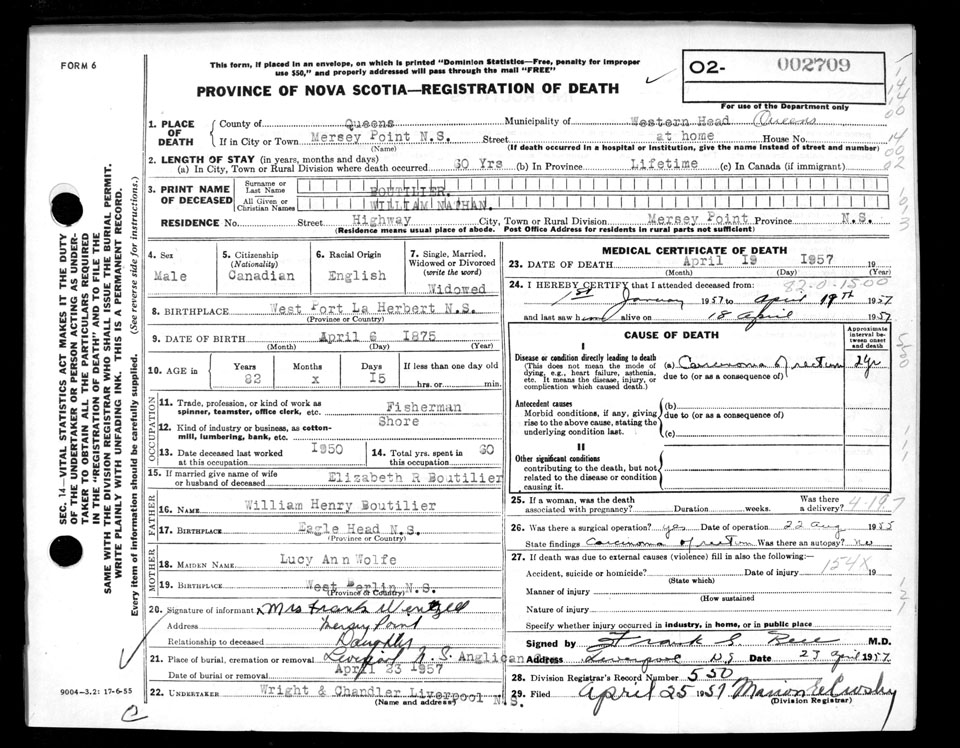 FORM 6
This form, if placed in an envelope, on which is printed "Dominion Statistics—Free, penalty for improper
use $50," and properly addressed will pass through the mail "FREE"
PROVINCE OF NOVA SCOTIA—REGISTRATION OF DEATH
02- 002709
For use of the Department only
1. PLACE OF DEATH
County of Queens Municipality of Western Head Queens
If in City or Town Mersey Point N.S. Street at home House No.
(Name) (If death occurred in a hospital or institution, give the name instead of street and number)
2. LENGTH OF STAY (in years, months and days)
(a) In City, Town or Rural Division where death occurred 60 Yrs (b) In Province Lifetime (c) In Canada (if immigrant)
3. PRINT NAME OF DECEASED
Surname or Last Name BOUTILIER.
All Given or Christian Names WILLIAM NATHAN.
RESIDENCE No. Street Highway City, Town or Rural Division Mersey Point Province N.S.
(Residence means usual place of abode. Post Office Address for residents in rural parts not sufficient)
4. Sex
Male
5. Citizenship
(Nationality)
Canadian
6. Racial Origin
English
7. Single, Married,
Widowed or Divorced
(write the word)
Widowed
8. BIRTHPLACE West Port La Herbert N.S.
(Province or Country)
9. DATE OF BIRTH April 6 1875
(Month) (Day) (Year)
10. AGE
Years Months Days If less than one day old
82 x 15 hrs. or min.
OCCUPATION
11. Trade, profession, or kind of work as
spinner, teamster, office clerk, etc. Fisherman
12. Kind of industry or business, as cotton-
mill, lumbering, bank, etc. Shore
13. Date deceased last worked
at this occupation 1950
14. Total yrs. spent in
this occupation 60
15. If married give name of wife
or husband of deceased Elizabeth R Boutilier
FATHER
16. NAME William Henry Boutilier
17. BIRTHPLACE Eagle Head N.S.
(Province or Country)
MOTHER
18. MAIDEN NAME Lucy Ann Wolfe
19. BIRTHPLACE West Berlin N.S.
(Province or Country)
20. Signature of informant Mrs Frank Wentzell
Address Mersey Point
Relationship to deceased Daughter
21. Place of burial, cremation or removal Liverpool N.S. Anglican
Date of burial or removal April 23 1957
22. UNDERTAKER Wright & Chandler Liverpool N.S.
(Name and address)
MEDICAL CERTIFICATE OF DEATH
23. DATE OF DEATH April 19 1957 19
(Month) (Day) (Year)
82-0-1500
24. I HEREBY CERTIFY that I attended deceased from:
1st January 1957 to April 19th 1957
and last saw him alive on 18 April 1957
CAUSE OF DEATH
Approximate interval between onset and death
I
Disease or condition directly leading to death
(This does not mean the mode of
dying, e.g., heart failure, asthenia,
etc. It means the disease, injury, or
complication which caused death.)
(a) Carcinoma of rectum 2 yr
due to (or as a consequence of)
Antecedent causes
Morbid conditions, if any, giving
rise to the above cause, stating the
underlying condition last.
(b)
due to (or as a consequence of)
(c)
II
Other significant conditions
contributing to the death, but not
related to the disease or condition
causing it.
25. If a woman, was the death
associated with pregnancy? Duration weeks. Was there
a delivery? 4-197
26. Was there a surgical operation? yes Date of operation 22 Aug 1955
State findings Carcinoma of rectum Was there an autopsy? No
27. If death was due to external causes (violence) fill in also the following:—
154X
Accident, suicide or homicide? Date of injury 19
(State which)
Manner of injury
(How sustained
Nature of injury
Specify whether injury occurred in industry, in home, or in public place
Signed by Frank G. M.D.
Address Liverpool NS Date 23 April 1957.
28. Division Registrar's Record Number 550
29. Filed April 25 1957 Marion E Crosby
(Division Registrar)
SEC. 14—VITAL STATISTICS ACT MAKES IT THE DUTY
OF THE UNDERTAKER OR PERSON ACTING AS UNDER-
TAKER TO OBTAIN ALL THE PARTICULARS REQUIRED
IN THE "REGISTRATION OF DEATH" AND TO FILE THE
SAME WITH THE DIVISION REGISTRAR WHO SHALL ISSUE THE BURIAL PERMIT.
WRITE PLAINLY WITH UNFADING INK. THIS IS A PERMANENT RECORD.
Every item of information should be carefully supplied. (See reverse side for instructions.)
9004—3.2: 17-6-55